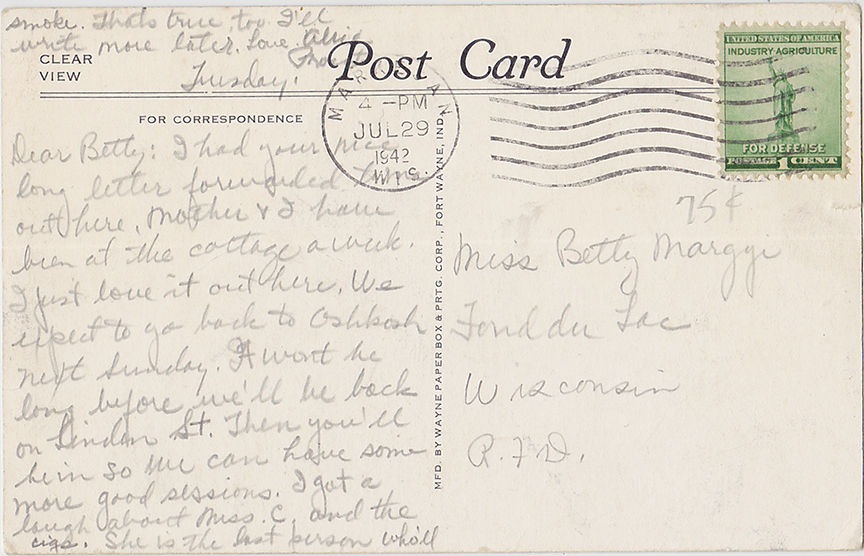 smoke. Thats true, too. I'll
write more later. Love,
Tuesday.
CLEAR
VIEW
Post Card
FOR CORRESPONDENCE
4 -PM
JUL 29
1942
WIS.
UNITED STATES OF AMERICA
INDUSTRY·AGRICULTURE
FOR DEFENSE
POSTAGE 1 CENT
Dear Betty: I had your nice
long letter forwarded
out here. Mother & I have
been at the cottage a week.
I just love it out here. We
expect to go back to Oshkosh
next Sunday. It wont be
long before we'll be back
on Linden St. Then you'll
be in so we can have some
more good sessions. I got a
laugh about Miss. C. and the
cigs. She is the last person who'll
MFD. BY WAYNE PAPER BOX & PRTG. CORP., FORT WAYNE, IND.
75¢
Miss Betty
Fond du Lac
Wisconsin
R.F.D.